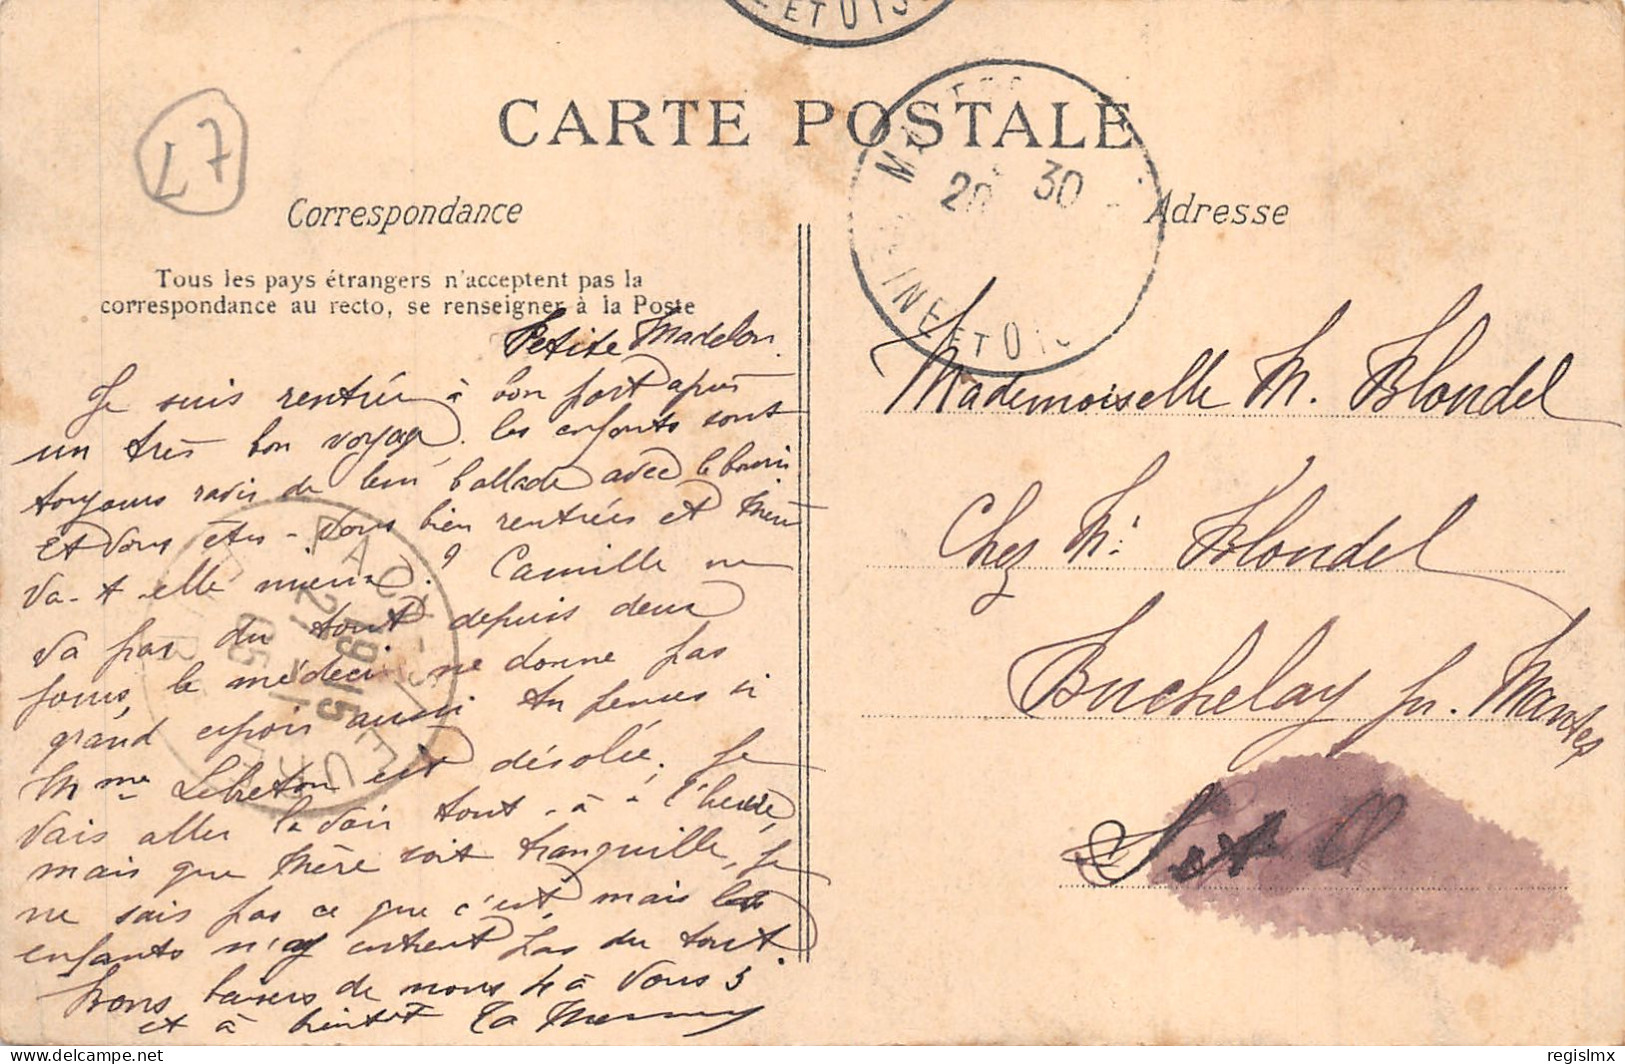 CARTE POSTALE
Correspondance
Adresse
Tous les pays étrangers n'acceptent pas la
correspondance au recto, se renseigner à la Poste
Petite Madelon
Je suis rentrée à bon port après
un très bon voyage. les enfants sont
toujours ravis de leur ballade avec
Et vous êtes-vous bien rentrées et Mère
va-t-elle mieux? Camille ne
va pas du tout depuis deux
jours, le médecin ne donne pas
grand espoir aussi tu penses si
Mme Lebreton est désolée. Je
vais aller la voir tout-à-l'heure,
mais que Mère soit tranquille, je
ne sais pas ce que c'est mais les
enfants n'y entrent pas du tout.
Bons baisers de nous 4 à vous 3
et à bientôt Ta
Mademoiselle M. Blondel
Chez Mr Blondel
Buchelay pr. Mantes
S et O
20 30
INE ET OIS
ET OIS
19 15
2
05
L7
delcampe.net
regislmx